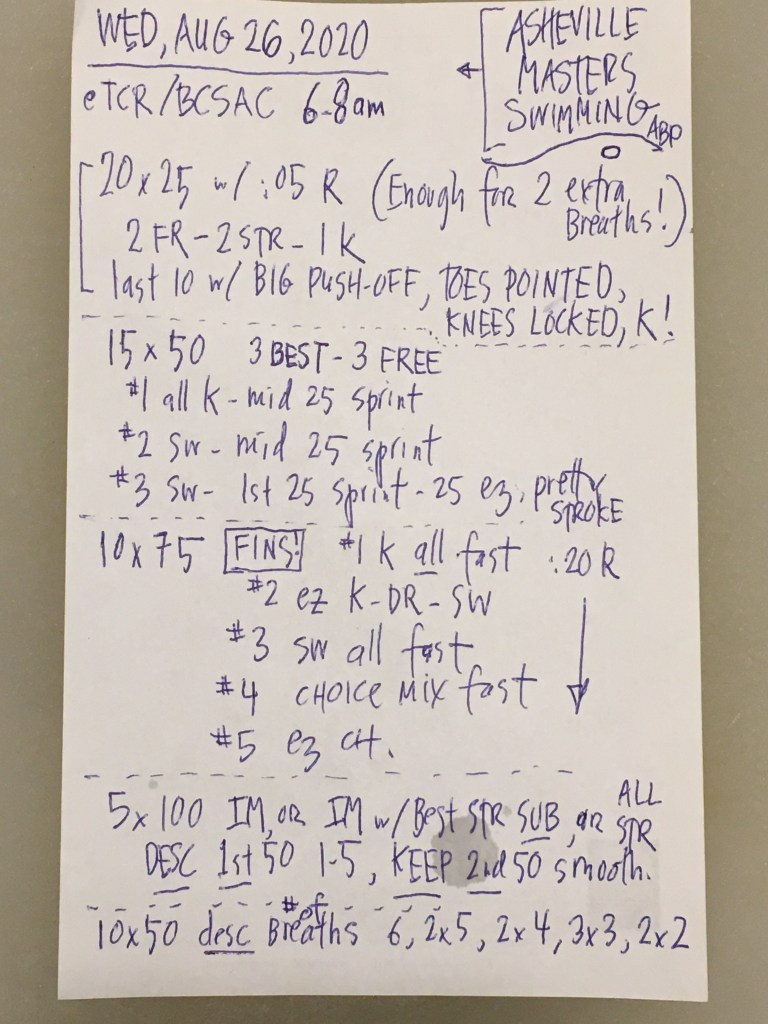 WED, AUG 26, 2020
ASHEVILLE
MASTERS
SWIMMING
ABP
eTCR/BCSAC 6-8am
20 x 25 w/ :05 R (Enough for 2 extra
Breaths!)
2 FR - 2 STR - 1 K
last 10 w/ BIG PUSH-OFF, TOES POINTED,
KNEES LOCKED, K!
15 x 50 3 BEST - 3 FREE
#1 all K - mid 25 sprint
#2 sw - mid 25 sprint
#3 sw - 1st 25 sprint - 25 ez, pretty
STROKE
10 x 75 FINS! #1 K all fast :20 R
#2 ez K-DR-SW
#3 sw all fast
#4 CHOICE MIX fast
#5 ez CH.
5 x 100 IM, OR IM w/ Best STR SUB, or ALL
STR
DESC 1st 50 1-5, KEEP 2nd 50 smooth.
10 x 50 desc # of Breaths 6, 2x5, 2x4, 3x3, 2x2